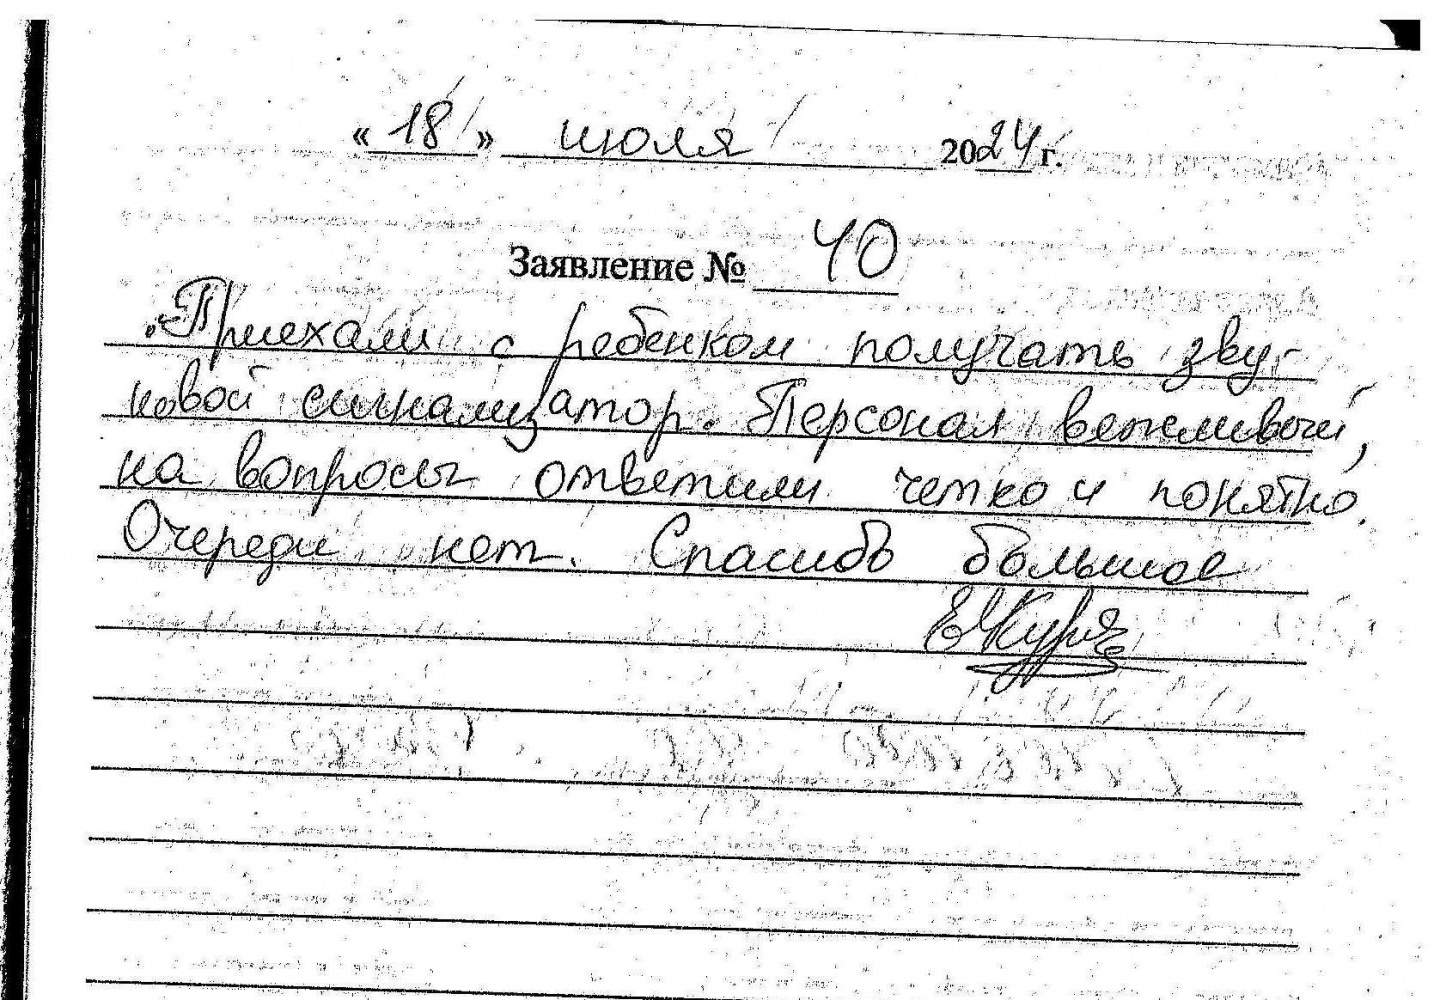 «18» июля 2024 г.
Заявление № 40
Приехали с ребенком получать зву-
ковой сигнализатор. Персонал вежливый,
на вопросы ответили четко и понятно.
Очереди нет. Спасибо большое